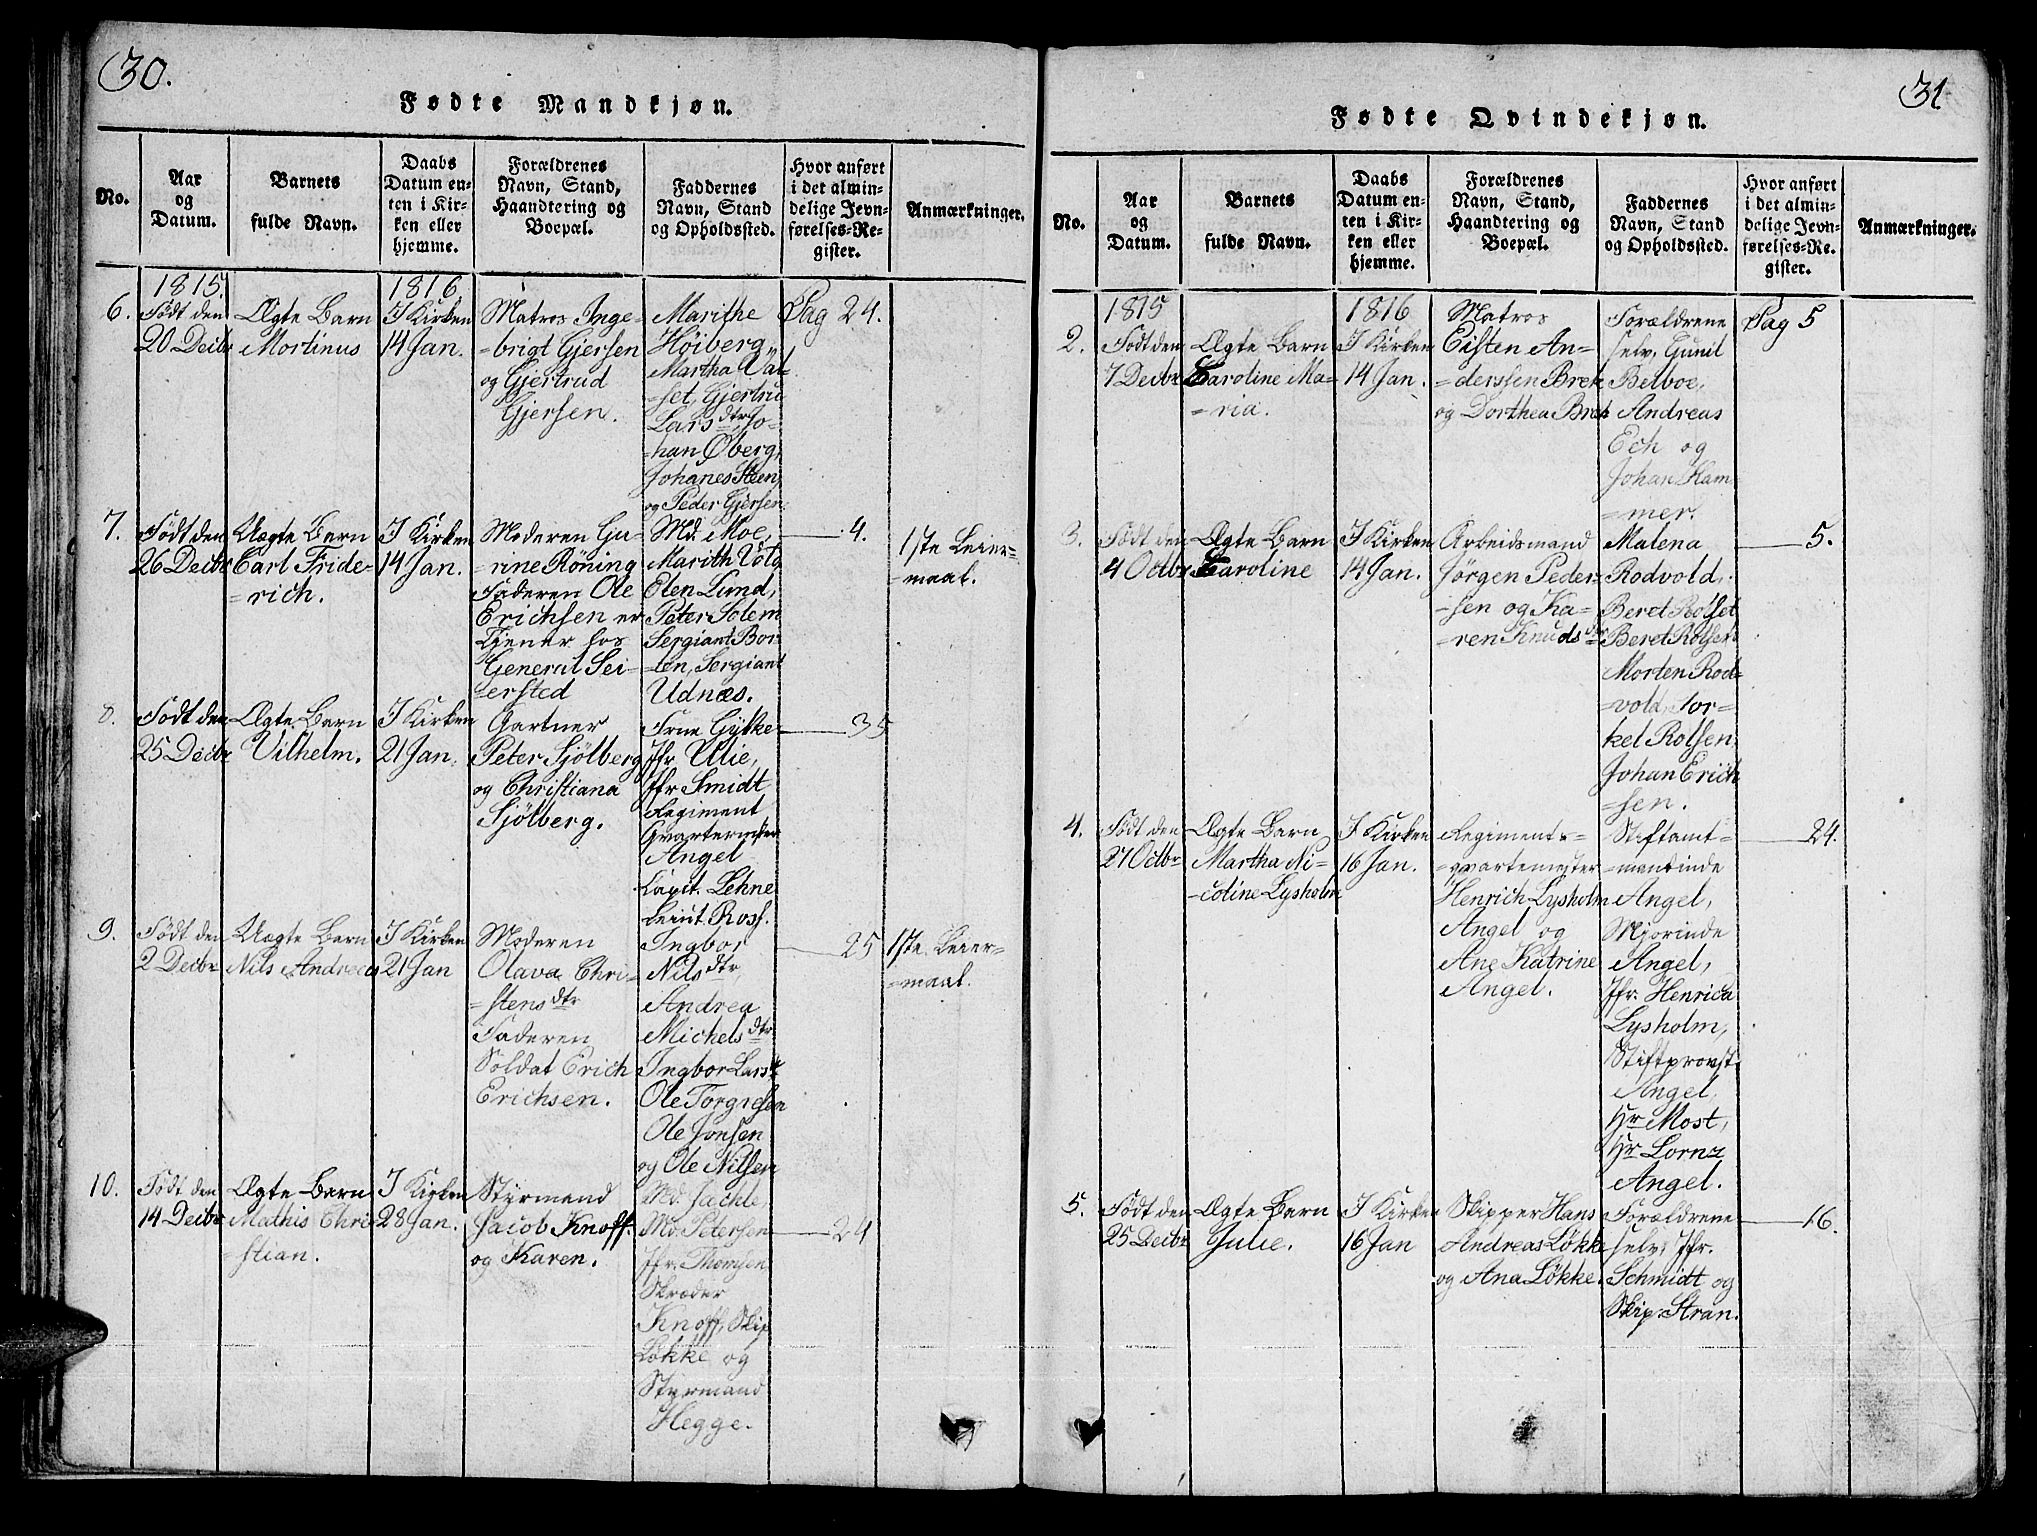 30.
Fødte Mandkjøn.
No.
Aar
og
Datum.
Barnets
fulde Navn.
Daabs
Datum en-
ten i Kir-
ken eller
hjemme.
Forældrenes
Navn, Stand,
Haandtering og
Boepæl.
Faddernes
Navn, Stand
og Opholdssted.
Hvor anført
i det almin-
delige Jevn-
førelses-Re-
gister.
Anmærkninger.
1815.
1816
6.
Født den
20 Decbr
Ægte Barn
Mortinus
I Kirken
14 Jan.
Matros Inge-
=brigt Gjersen
og Gjertrud
Gjersen.
Marithe
Høiberg,
Martha Val-
=set, Gjertru
Larsdtr, Jo-
=han Øberg,
Johanes Steen,
og Peder Gjersen
Pag 24.
7.
Født den
26 Decbr
Uægte Barn
Carl Fride-
=rich.
I Kirken
14 Jan.
Moderen Gu-
=rine Röning
Faderen Ole
Erichsen er
Tjener hos
General Sei-
=ersted
Md. Moe,
Marith Volg
Elen Lund,
Peter Solem
Sergiant Bor-
=ten, Sergiant
Udnæs.
4.
1ste Leier-
=maal.
8.
Født den
25 Decbr
Ægte Barn
Vilhelm.
I Kirken
21 Jan.
Gartner
Peter Sjölberg
og Christiana
Sjölberg.
Frue Gylke
Jfr Ulie,
Jfr Smidt
Regiment
Qvartermster
Angel
Capit. Lehne
Leiut. Ross.
35
9.
Født den
2 Decbr
Uægte Barn
Nils Andreas
I Kirken
21 Jan
Moderen
Olava Chri-
=stensdtr
Faderen
Soldat Erich
Erichsen.
Ingbor
Nilsdtr,
Andrea
Michelsdtr
Ingbor Larsdtr
Ole Torgresen
Ole Jonsen
og Ole Nilsen
25
1ste Leier-
=maal.
10.
Født den
14 Decbr
Ægte Barn
Mathis Chri
=stian.
I Kirken
28 Jan.
Styrmand
Jacob Knoff.
og Karen.
Md. Jachle,
Md. Petersen
Jfr. Thomsen
Skræder
Knoff, Skip
Løkke og
Styrmand
Hegge.
24
31
Fødte Qvindekjøn.
No.
Aar
og
Datum.
Barnets
fulde Navn.
Daabs
Datum en-
ten i Kir-
ken eller
hjemme.
Forældrenes
Navn, Stand,
Haandtering og
Boepæl.
Faddernes
Navn, Stand
og Opholdssted.
Hvor anført
i det almin-
delige Jevn-
førelses-Re-
gister.
Anmærkninger.
1815
1816
2.
Født den
7 Decbr
Ægte Barn
Caroline Ma-
=ria.
I Kirken
14 Jan.
Matros
Eisten An-
=derssen Brek
og Dorthea Brek
Forældrene
selv, Gunil
Belboe,
Andreas
Ech og
Johan Ham
=mer.
Pag 5
3.
Født den
4 Octbr
Ægte Barn
Caroline
I Kirken
14 Jan.
Arbeidsmand
Jörgen Peder-
=sen og Ka-
=ren Knudsdtr
Malena
Rodvold,
Beret Rolset
Beret Rolsen
Morten Rod-
=vold, Tor-
=kel Rolsen
Johan Erich
=sen.
5.
4.
Født den
27 Octbr
Ægte Barn
Martha Ni-
=coline Lysholm
I Kirken
16 Jan.
Regiments-
=qvartemester
Henrich Lysholm
Angel og
Ane Katrine
Angel.
Stiftamt-
=mandinde
Angel,
Mjorinde
Angel,
Jfr. Henrica
Lysholm,
Stiftprovst
Angel,
Hr Most,
Hr Lornz
Angel.
24.
5.
Født den
25 Decbr
Ægte Barn
Julie.
I Kirken
16 Jan
Skipper Hans
Andreas Løkke
og Ana Løkke.
Forældrene
selv, Jfr.
Schmidt og
Skip: Stran.
16.